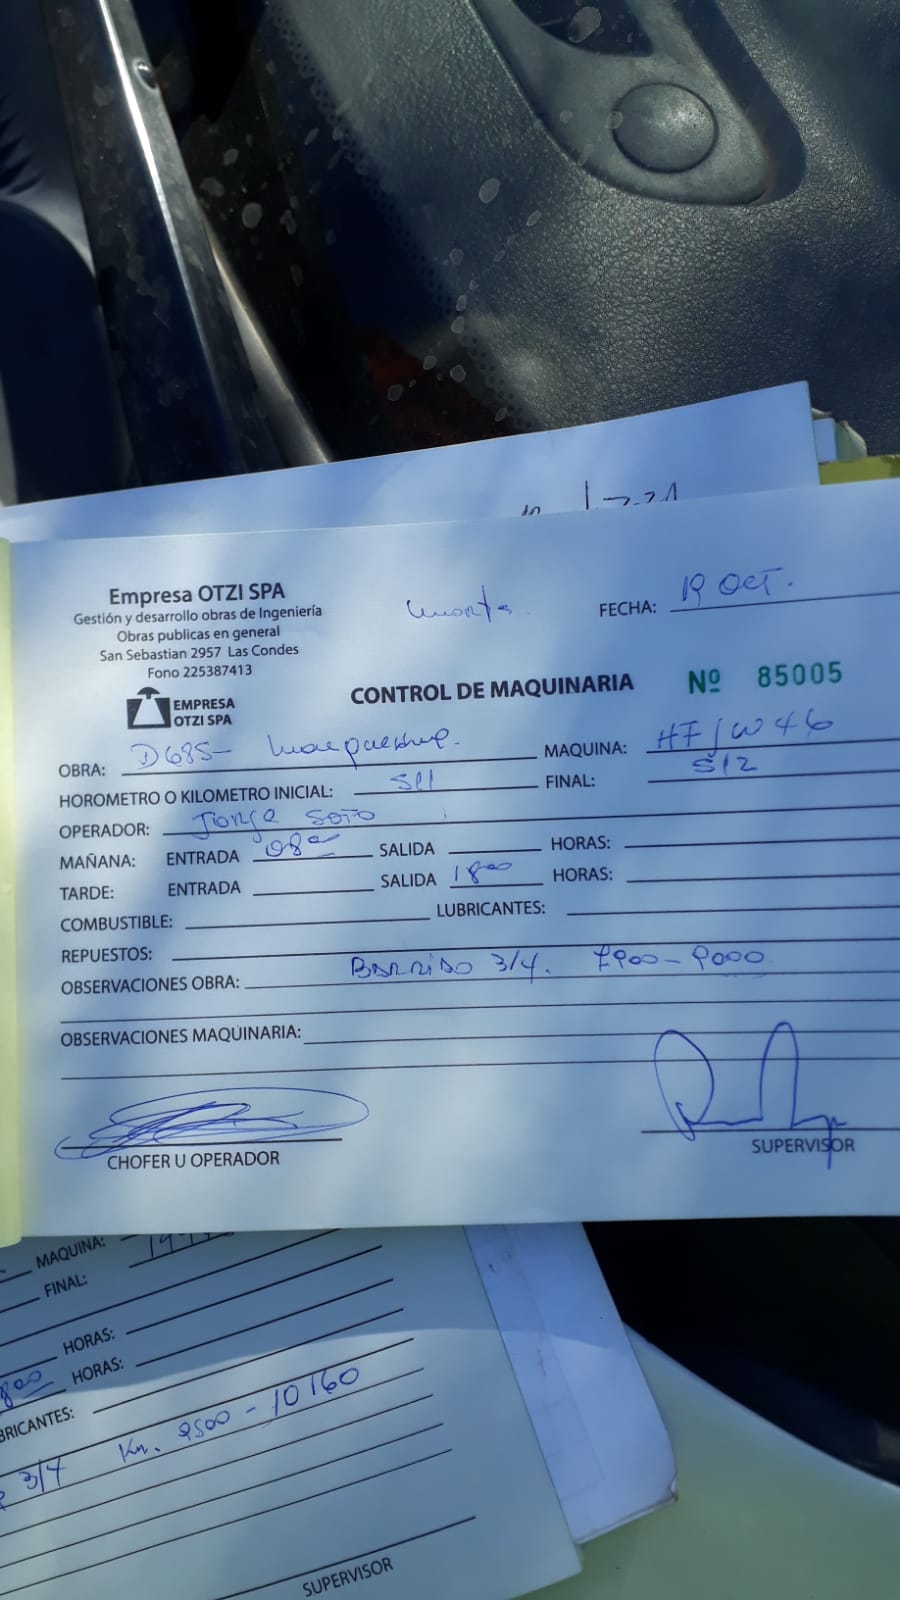 Empresa OTZI SPA
Gestión y desarrollo obras de Ingeniería
Obras publicas en general
San Sebastian 2957 Las Condes
Fono 225387413
EMPRESA
OTZI SPA
FECHA: 19 OCT.
CONTROL DE MAQUINARIA Nº 85005
OBRA: D685- MAQUINA: HFJW46
HOROMETRO O KILOMETRO INICIAL: 511 FINAL: 512
OPERADOR: Jorge Soto
MAÑANA: ENTRADA 0800 SALIDA HORAS:
TARDE: ENTRADA SALIDA 1800 HORAS:
COMBUSTIBLE: LUBRICANTES:
REPUESTOS:
OBSERVACIONES OBRA: Barrido 3/4. 7900-9000
OBSERVACIONES MAQUINARIA:
CHOFER U OPERADOR SUPERVISOR
MAQUINA:
FINAL:
HORAS:
HORAS:
BRICANTES:
3/4 Km. 9500-10160
SUPERVISOR